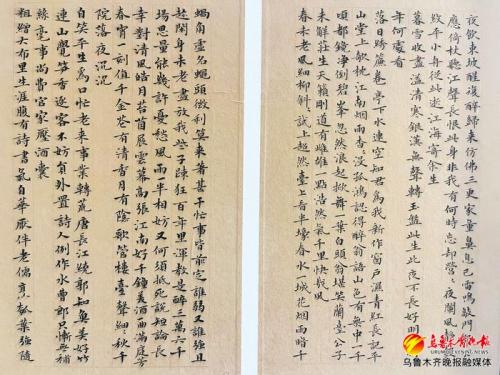 夜飲東坡醒復醉歸來彷彿三更家童鼻息已雷鳴敲門
應倚杖聽江聲長恨此身非我有何時忘卻營〻夜闌風靜
縠平小舟從此逝江海寄余生
暮雲收盡溢清寒銀漢無聲轉玉盤此生此夜不長好明月
年何處看
落日繡簾卷亭下水連空知君為我新作窗戶濕青紅長記平
山堂上欹枕江南烟雨杳〻沒孤鴻認得醉翁語山色有無中一千
頃都鏡净倒碧峯忽然浪起掀舞一葉白頭翁堪笑蘭臺公子
未解莊生天籟剛道有雌雄一點浩然氣千里快哉風
春未老風細柳斜〻試上超然臺上看半壕春水一城花烟雨暗千
蝸角虛名蠅頭微利算來著甚干忙事皆前定誰弱又誰強且
趁閑身未老盡放我些子疎狂百年里渾教是醉三萬六千
場思量能幾許憂愁風雨一半相妨又何須抵死說短論長
幸對清風皓月苔茵展雲幕高張江南好千鍾美酒一曲滿庭芳
春宵一刻值千金花有清香月有陰歌管樓臺聲細〻秋千
院落夜沉沉
自笑平生為口忙老來事業轉荒唐長江繞郭知魚美好竹
連山覺笋香逐客不妨員外置詩人例作水曹郎只慚無補
絲毫事尚費官家壓酒囊
粗繒大布裹生涯腹有詩書氣自華厭伴老儒烹瓠葉強隨
乌鲁木齐晚报
乌鲁木齐晚报融媒体